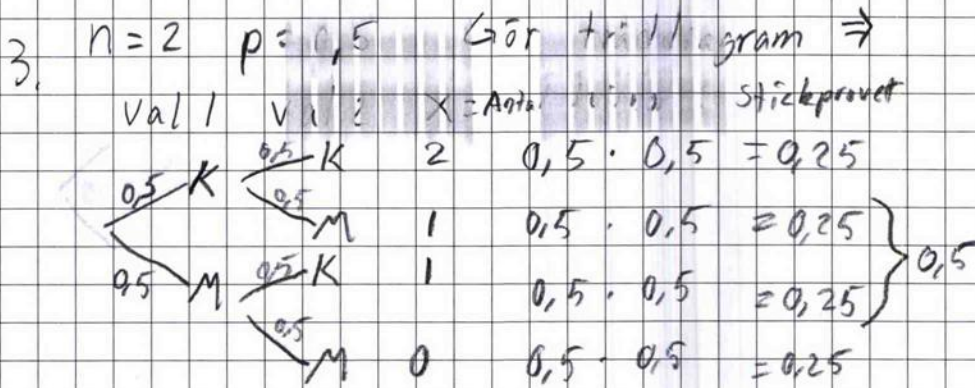 3. n = 2 p = 0,5 Gör träddiagram ⇒
Val 1 Val 2 X = Antal Stickprovet
0,5 K 0,5 K 2 0,5 · 0,5 = 0,25
0,5 M 1 0,5 · 0,5 = 0,25
0,5 M 0,5 K 1 0,5 · 0,5 = 0,25
0,5 M 0 0,5 · 0,5 = 0,25
} 0,5